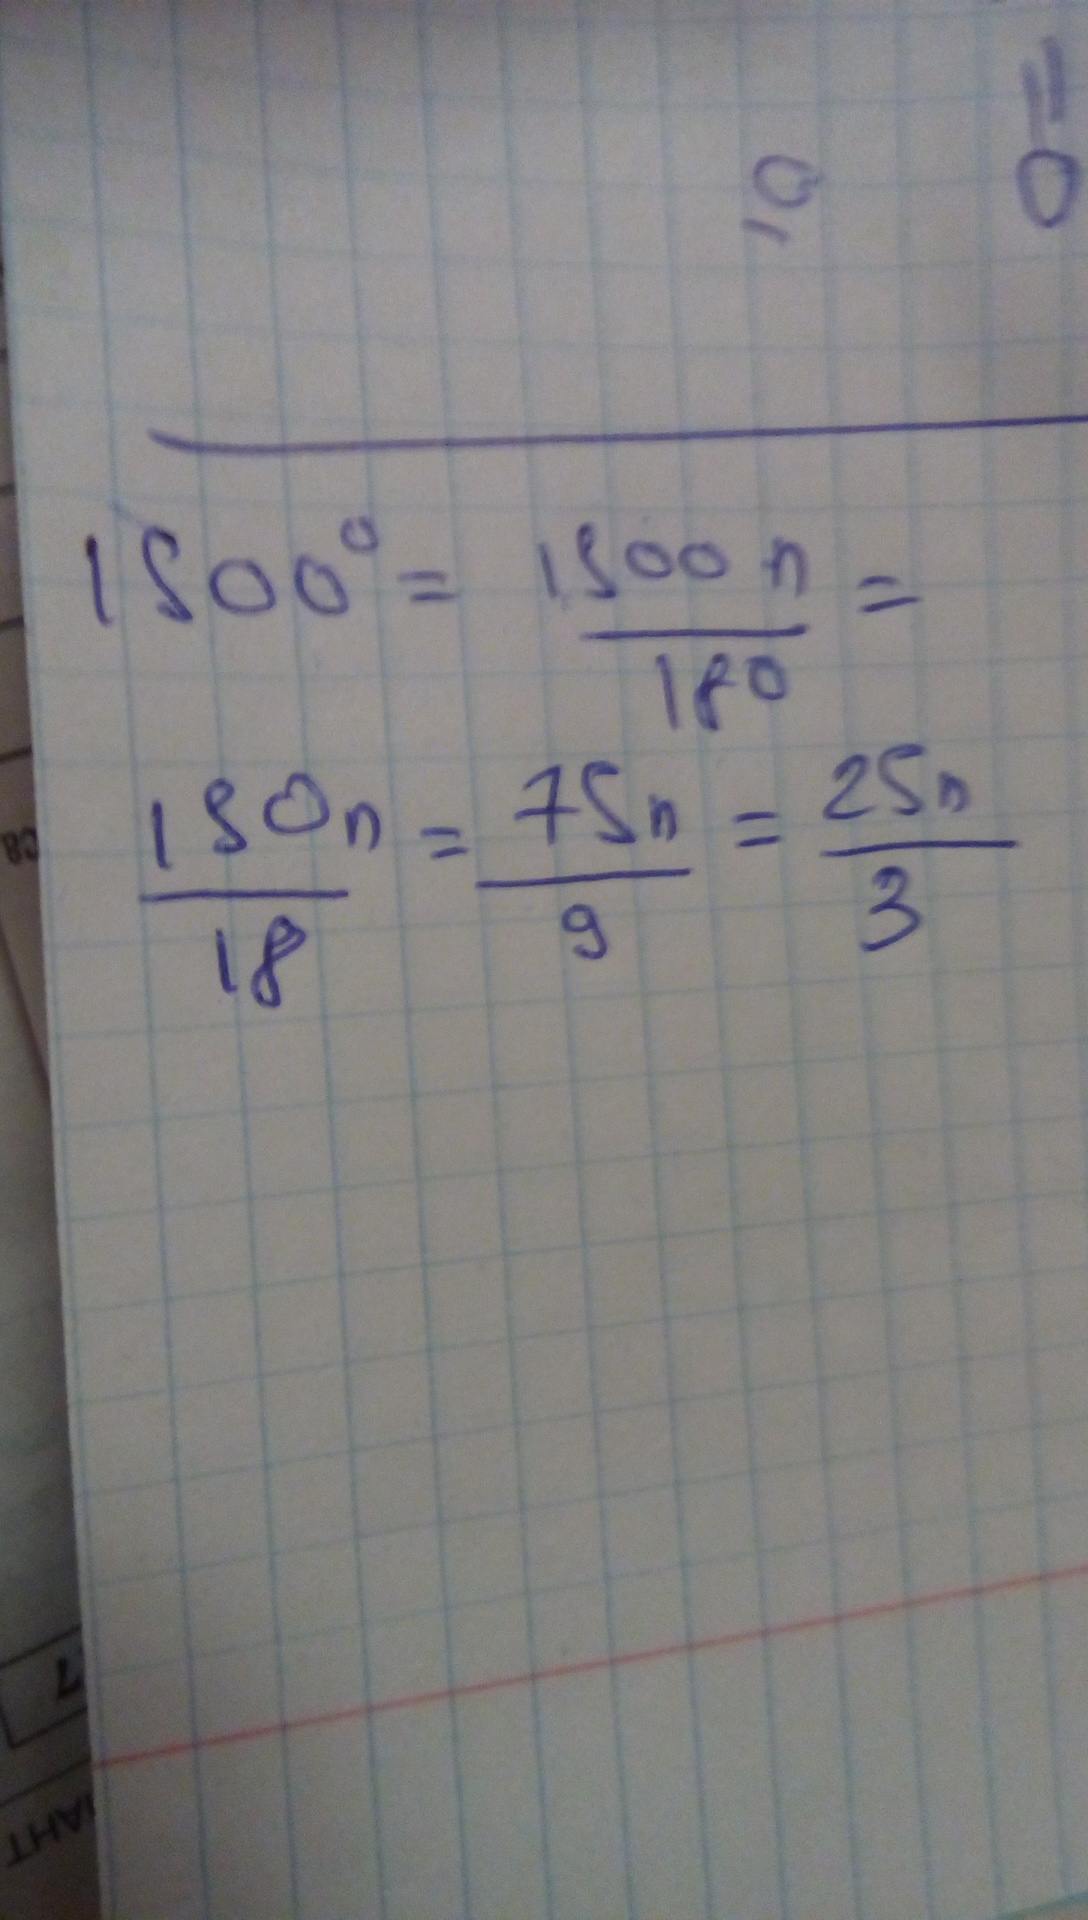 1500° = 1500п/180 =
150п/18 = 75п/9 = 25п/3